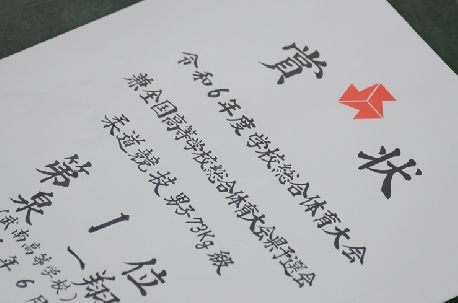 賞状
令和6年度学校総合体育大会
兼全国高等学校総合体育大会県予選会
柔道競技 男子73kg級
第1位
泉 一翔
(武南高等学校)
年6